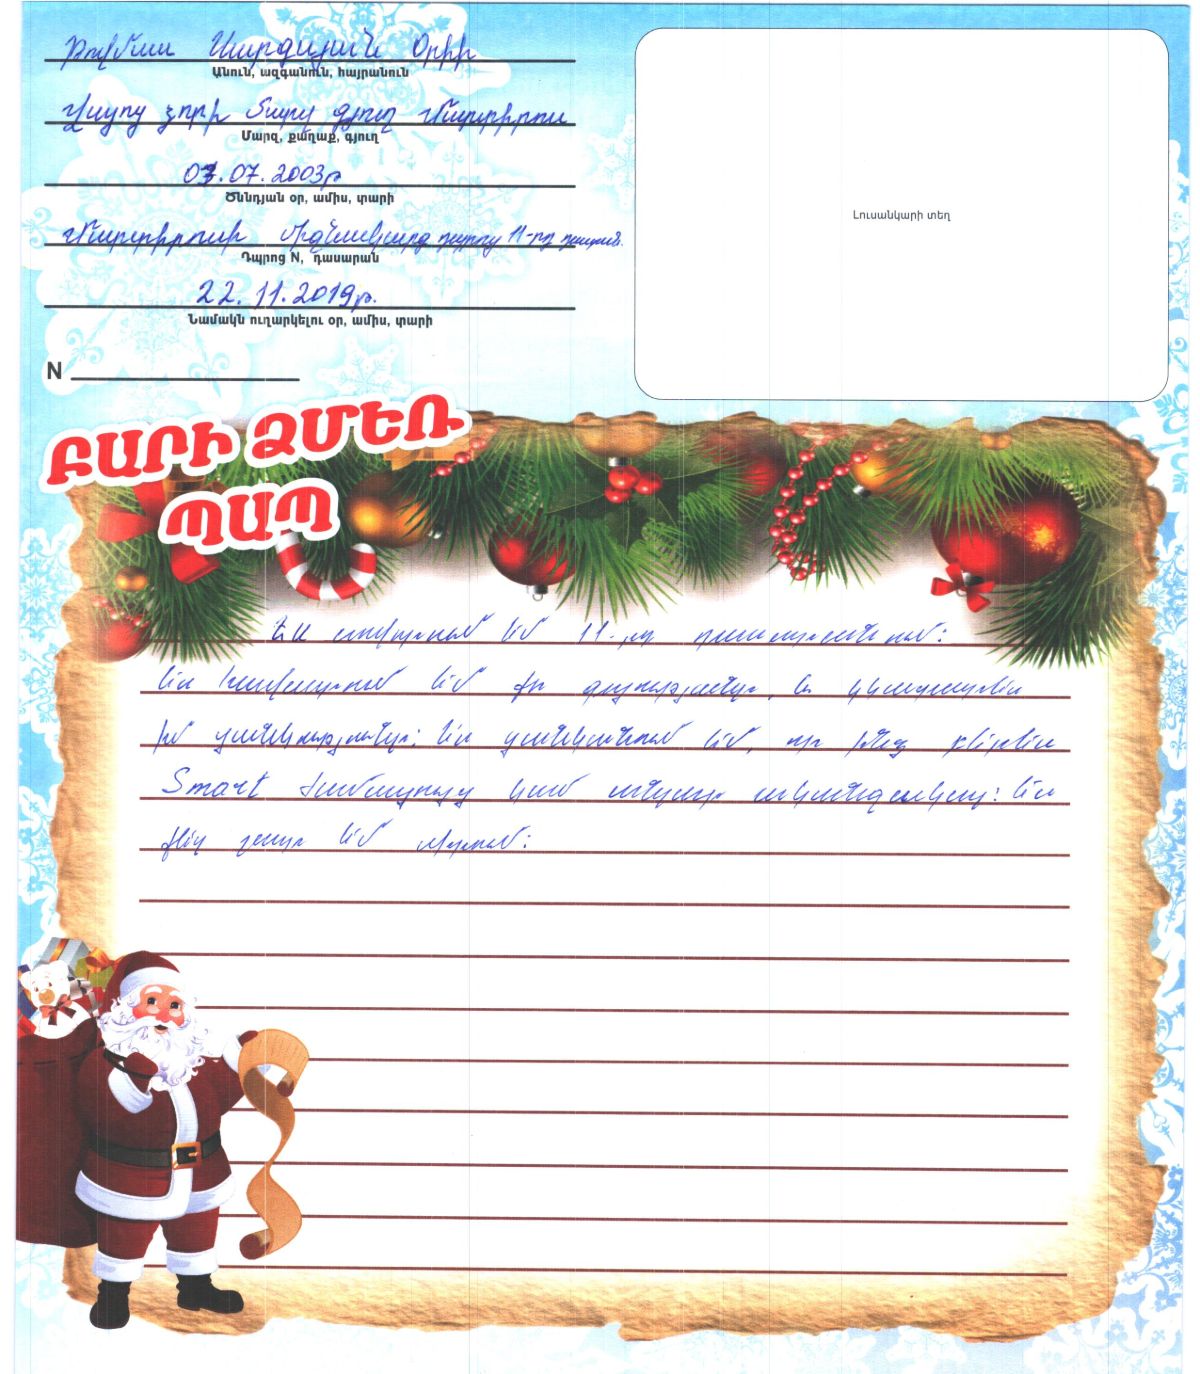 Թովմաս Սարգսյան Օրիի
Անուն, ազգանուն, հայրանուն
Վայոց ձորի մարզ գյուղ Մարտիրոս
Մարզ, քաղաք, գյուղ
03.07.2003թ
Ծննդյան օր, ամիս, տարի
Մարտիրոսի միջնակարգ դպրոց 11-րդ դասարան.
Դպրոց N, դասարան
22.11.2019թ.
Նամակն ուղարկելու օր, ամիս, տարի
Լուսանկարի տեղ
N
ԲԱՐԻ ՁՄԵՌ
ՊԱՊ
Ես սովորում եմ 11-րդ դասարանում:
Ես հավատում եմ քո գոյությանը, և կկատարես
իմ ցանկությունը: Ես ցանկանում եմ, որ ինձ բերես
Smart ժամացույց կամ անլար ականջակալ: Ես
քեզ շատ եմ սիրում: